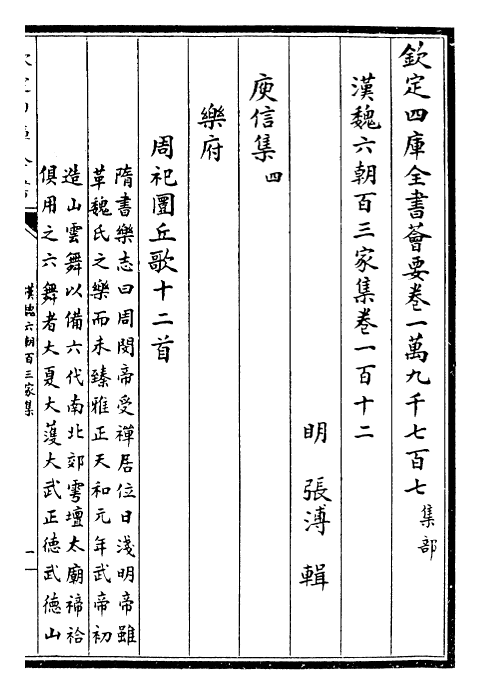 欽定四庫全書薈要卷一萬九千七百七 集部
漢魏六朝百三家集卷一百十二
明 張溥 輯
庾信集四
樂府
周祀圜丘歌十二首
隋書樂志曰周閔帝受禪居位日淺明帝雖
革魏氏之樂而未臻雅正天和元年武帝初
造山雲舞以備六代南北郊雩壇太廟禘祫
俱用之六舞者大夏大濩大武正德武德山
漢魏六朝百三家集
一